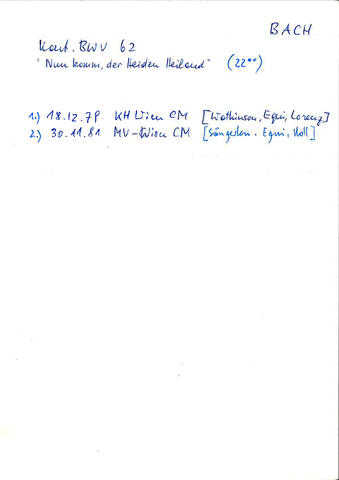 BACH
Kant. BWV 62
"Nun komm, der Heiden Heiland" (22°°)
1.) 18.12.79 KH Wien CM [Watkinson, Equi, Lorenz]
2.) 30.11.81 MV-Wien CM [Sängerkn. Equi, Holl]